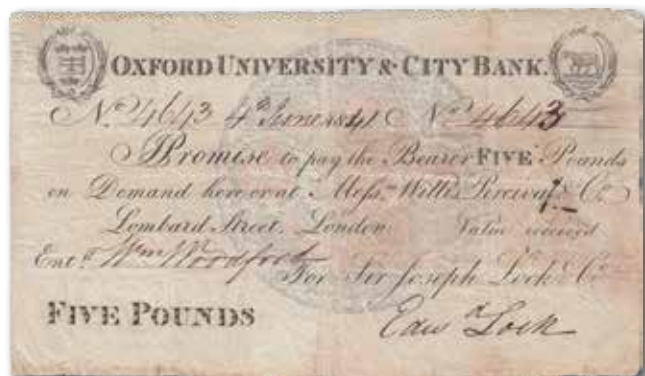 OXFORD UNIVERSITY & CITY BANK.
No. 4643 4th June 1841 No. 4643
I Promise to pay the Bearer FIVE Pounds
on Demand here or at Messrs. Willis Percival & Co
Lombard Street, London. Value received
Entd. Wm Woodfoot
For Sir Joseph Lock & Co
FIVE POUNDS
Edwd Lock